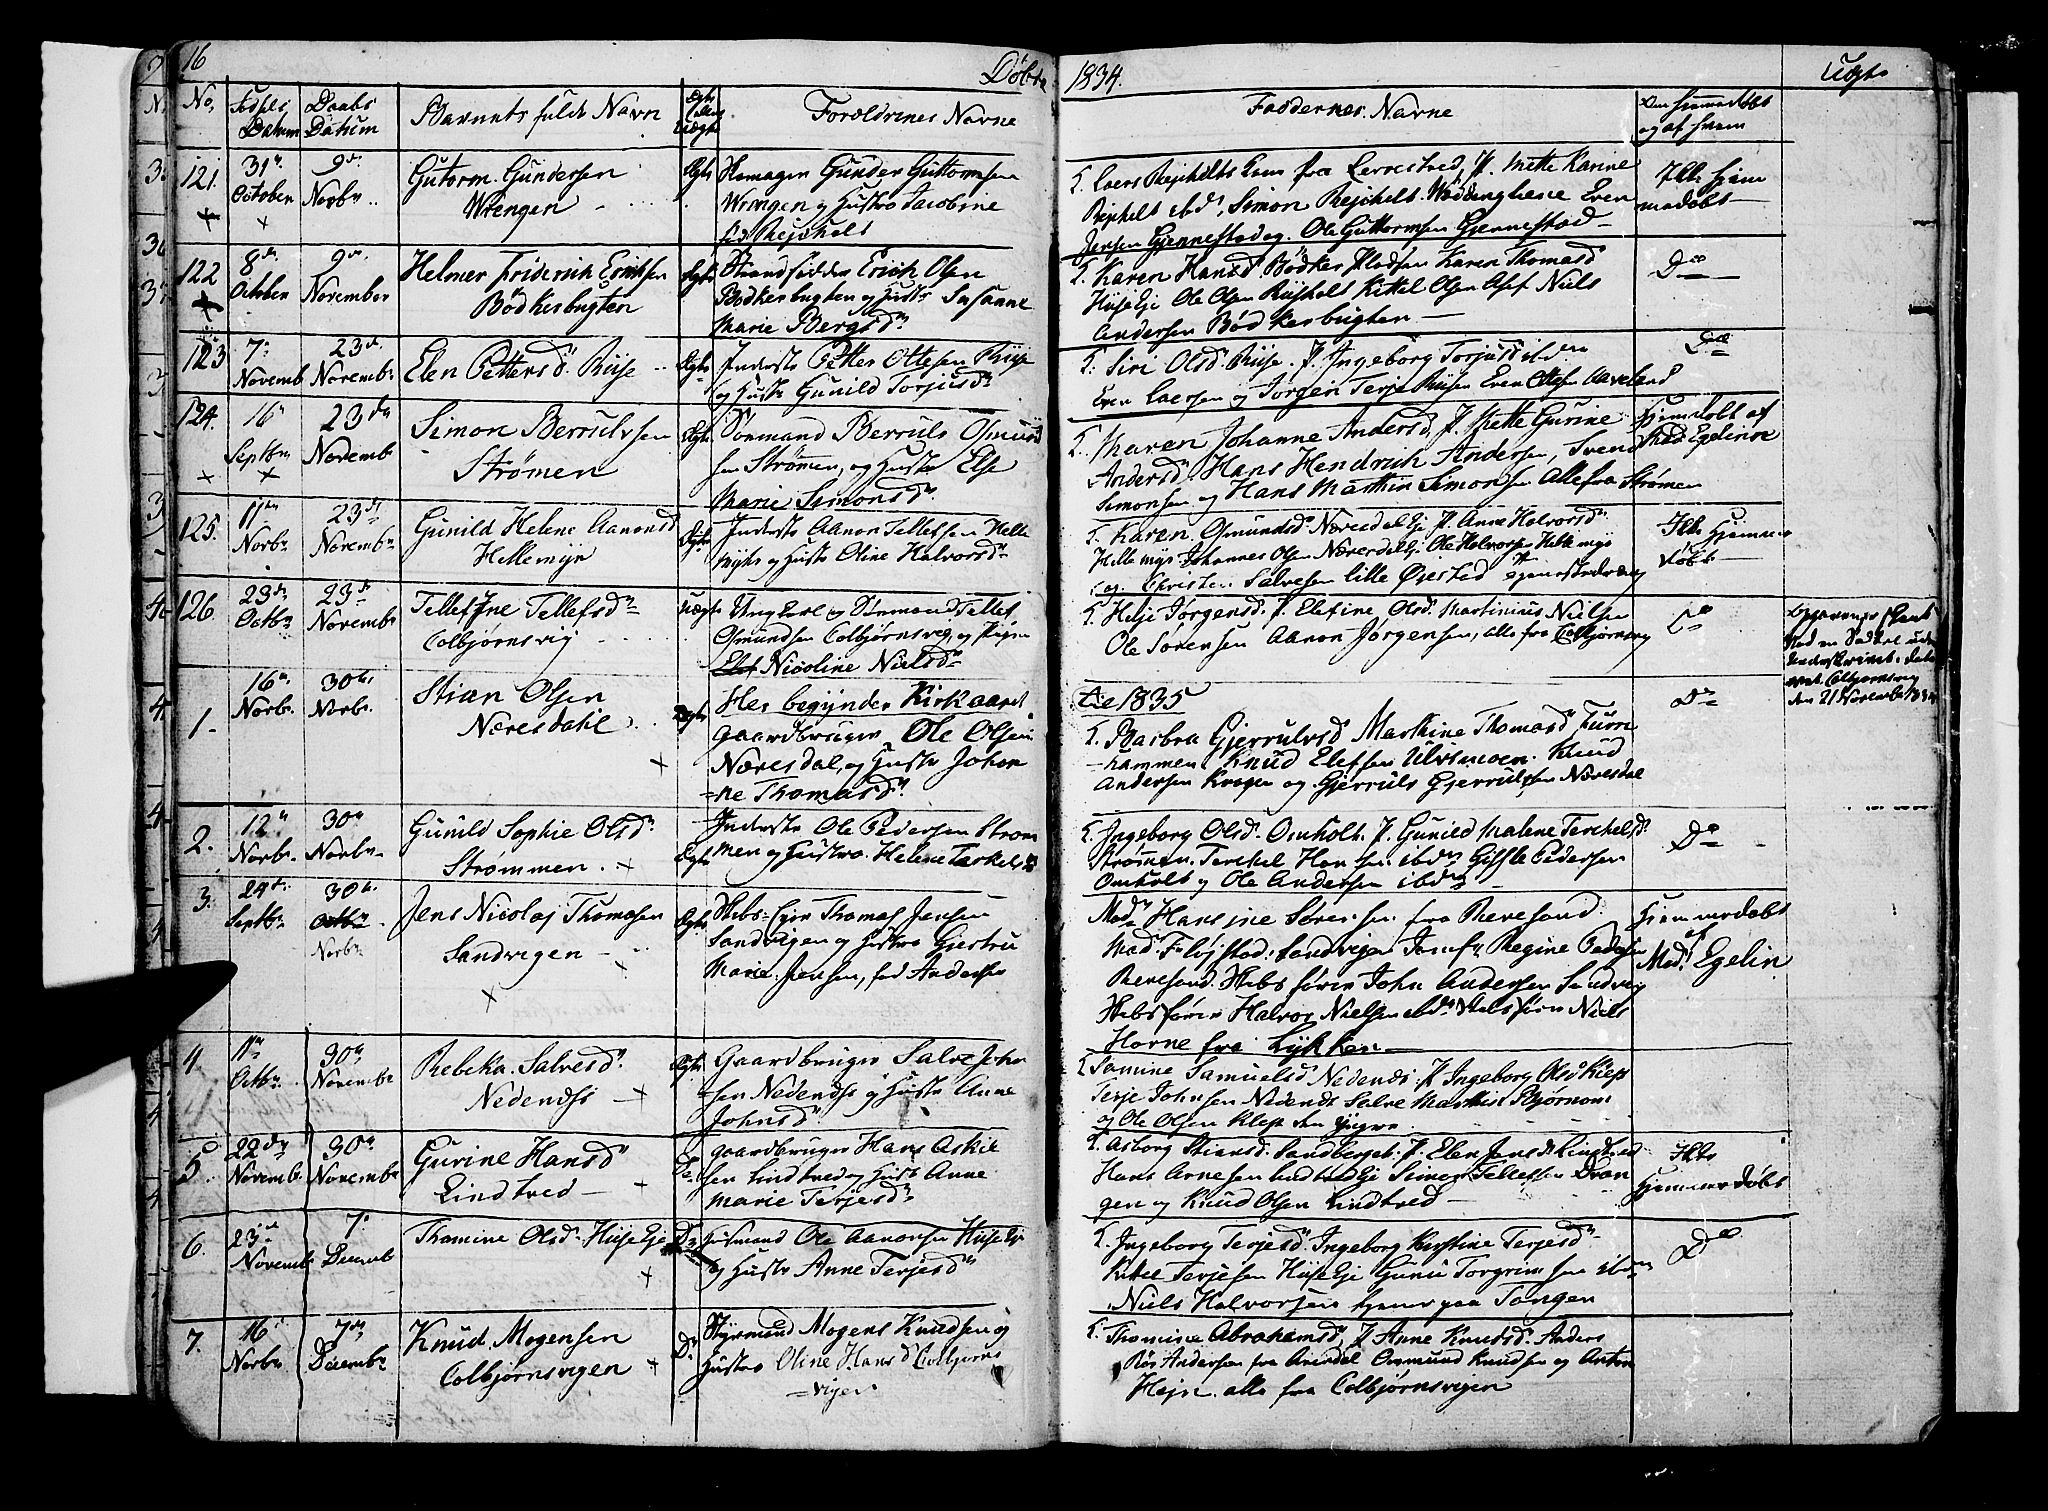 16
Døbte
1834.
No.
Fødsels Datum
Daabs Datum
Barnets fulde Navn
Forældrenes Navne
Faddernes Navne
om hjemmedøbt og af hvem
121.
31te October
9de Novbr
Gutorm Gundersen
Wrengen
Ægte
Gunder Guttormsen
Wrengen og Hustro Jacobine
fød Rejskels
fra Lerrestved, P. Mette Karine
ibd, Simon
Jensen Gjennestad og Ole Guttormsen Gjennestad
Ikke hjem
medøbt
122
8de October
9de November
Helmer Friderich Erichsen
Bødkerbugten
Ægte
Strandsidder Erich Olsen
Bødkerbugten og Hustr Susanne
Marie Bergsdr
F. Karen Hansd Bødker Karen Thomasd
Huseeje Ole Olsen Kittel Olsen Niels
Andersen Bødkerbugten
Do
123
7de Novemb
23de Novembr
Elen Pettersd Riise
Ægte
Inderste Petter Ottesen Riise
og Hustr Gunild Torjusd
F. Siri Olsd Riise. P. Ingeborg Torjusd ibdm
Even Larsen og Jørgen Terje Riisen Even Olsen
Do
124.
16de Septbr
23de Novembr
Simon Berrulvsen
Strømen
Ægte
Sønmand Berruls Osmund
sen Strømen, og Hustr Else
Marie Simonsdr
F. Maren Johanne Andersd, P. Mette Gurine
Andersd. Hans Hendrich Andersen, Svend
Simonsen og Hans Marthin Simonsen alle fra Strømen
Hjemdøbt af
Mad Egelinn
125.
11te Novbr
23de Novembr
Gunild Helene Aanonsd
Hellemyr
Ægte
Inderste Aanon Tellefsen Helle
myhr og Hustr Oline Halvorsdr
F. Karen Osmundsd Næresdal Eje P. Anne Halvorsdr
Hellemyr Johannes Olsen Næresdaleje Ole Halvorsen Hellemyr
og Christen Salvesen lille Øvestad
Ikke hjemme
døbt
126.
23de Octbr
23de Novembr
Tellefine Tellefsdr
Colbjørnsvig
Uægte
Ungkarl og Sømand Tellef
Osmundsen Colbjørnsvig, og Pigen
Nicoline Nielsdr
F. Helje Jørgensd. P. Elefine Olsd. Martinius Nielsen
Ole Sørensen Aanon Jørgensen, alle fra Colbjørnsvig
Do
den 21 November 1834
Her begynder Kirkeaaret
1835
1.
16de Novbr
30te Novbr
Stian Olsen
Næresdahl
Ægte
gaardbruger Ole Olsen
Næresdal, og Hustr Johan
ne Thomasdr
F. Barbra Gjerrulvsd Marthine Thomasdr
hammen Knud Elefsen Ulvsmoen Knud
Andersen Krogen og Gjerruls Gjerrulsen Næresdal
Do
2.
12te Novbr
30te Novbr
Gunild Sophie Olsdr
Strømmen
Ægte
Inderste Ole Pedersen Strøm
men og Hustro Helene Terkelsd
F. Ingeborg Olsd. Omholt. P. Gunild Malene Terchelsd
Strømmen. Terchel Hansen ibdm Pedersen
Omholt og Ole Andersen ibdm
Do
3.
24de Septbr
30te Octbr
Novbr
Jens Nicolaj Thomasen
Sandvigen
Ægte
Skibsfører Thomas Jensen
Sandvigen og Hustro Gjertru
Marie Jensen, fød Andersen
Madm Hansine Sørensen fra Revesand
Mad. Fløjstad Sandvigen Jomfr Regine Pedersen
Revesand. Skibsfører John Andersen Sandvig
Skibsfører Halvor Nielsen ibdm Skibsfører Niels
Horne fra Lykken
Hjemmedøbt
af
Mad. Egelin
4
11te Octbr
30te Novembr
Rebeka Salvesdr
Nedenæs
Ægte
Gaardbruger Salve John
sen Nedenæs og Hustr Anne
Johnsdr
F Samine Samuelsd Nedenæs P Ingeborg Olsd Klep
Terje Johnsen Nedenæs Salve
og Ole Olsen Klep den yngre
5.
22de Novembr
30te Novembr
Gurine Hansd
Lindtved
gaardbruger Hans Askil
sen Lindtved og Hustr Anne
Marie Terjesdr
F. Aasborg Stiansd Sandberget. P. Elen Jensd Lindtved
Hans Arnesen Simon Tellefsen Dran
gen og Knud Olsen Lindtved
Ikke
hjemmedøbt
6.
23de Novemb
7de Decemb
Thomine Olsdr Huseeje
Do
Husmand Ole Aanonsen Huseeje
og Hustr Anne Terjesdr
F. Ingeborg Terjesdr Ingeborg Kirstine Terjesdr
Kittel Terjesen Huseeje Gunu Torgrimsen ibdm
Niels Halvorsen hjemme paa Tangen
Do
7.
16de Novbr
7de Decembr
Knud Mogensen
Colbjørnsvigen
Do
Styrmand Mogens Knudsen og
Hustro Oline Hansd Colbjørns
vigen
F. Thomine Abrahamsd, P. Anne Knudsd. Anders
Andersen fra Arendal Osmund Knudsen og Anton
Hejn. alle fra Colbjørnsvigen